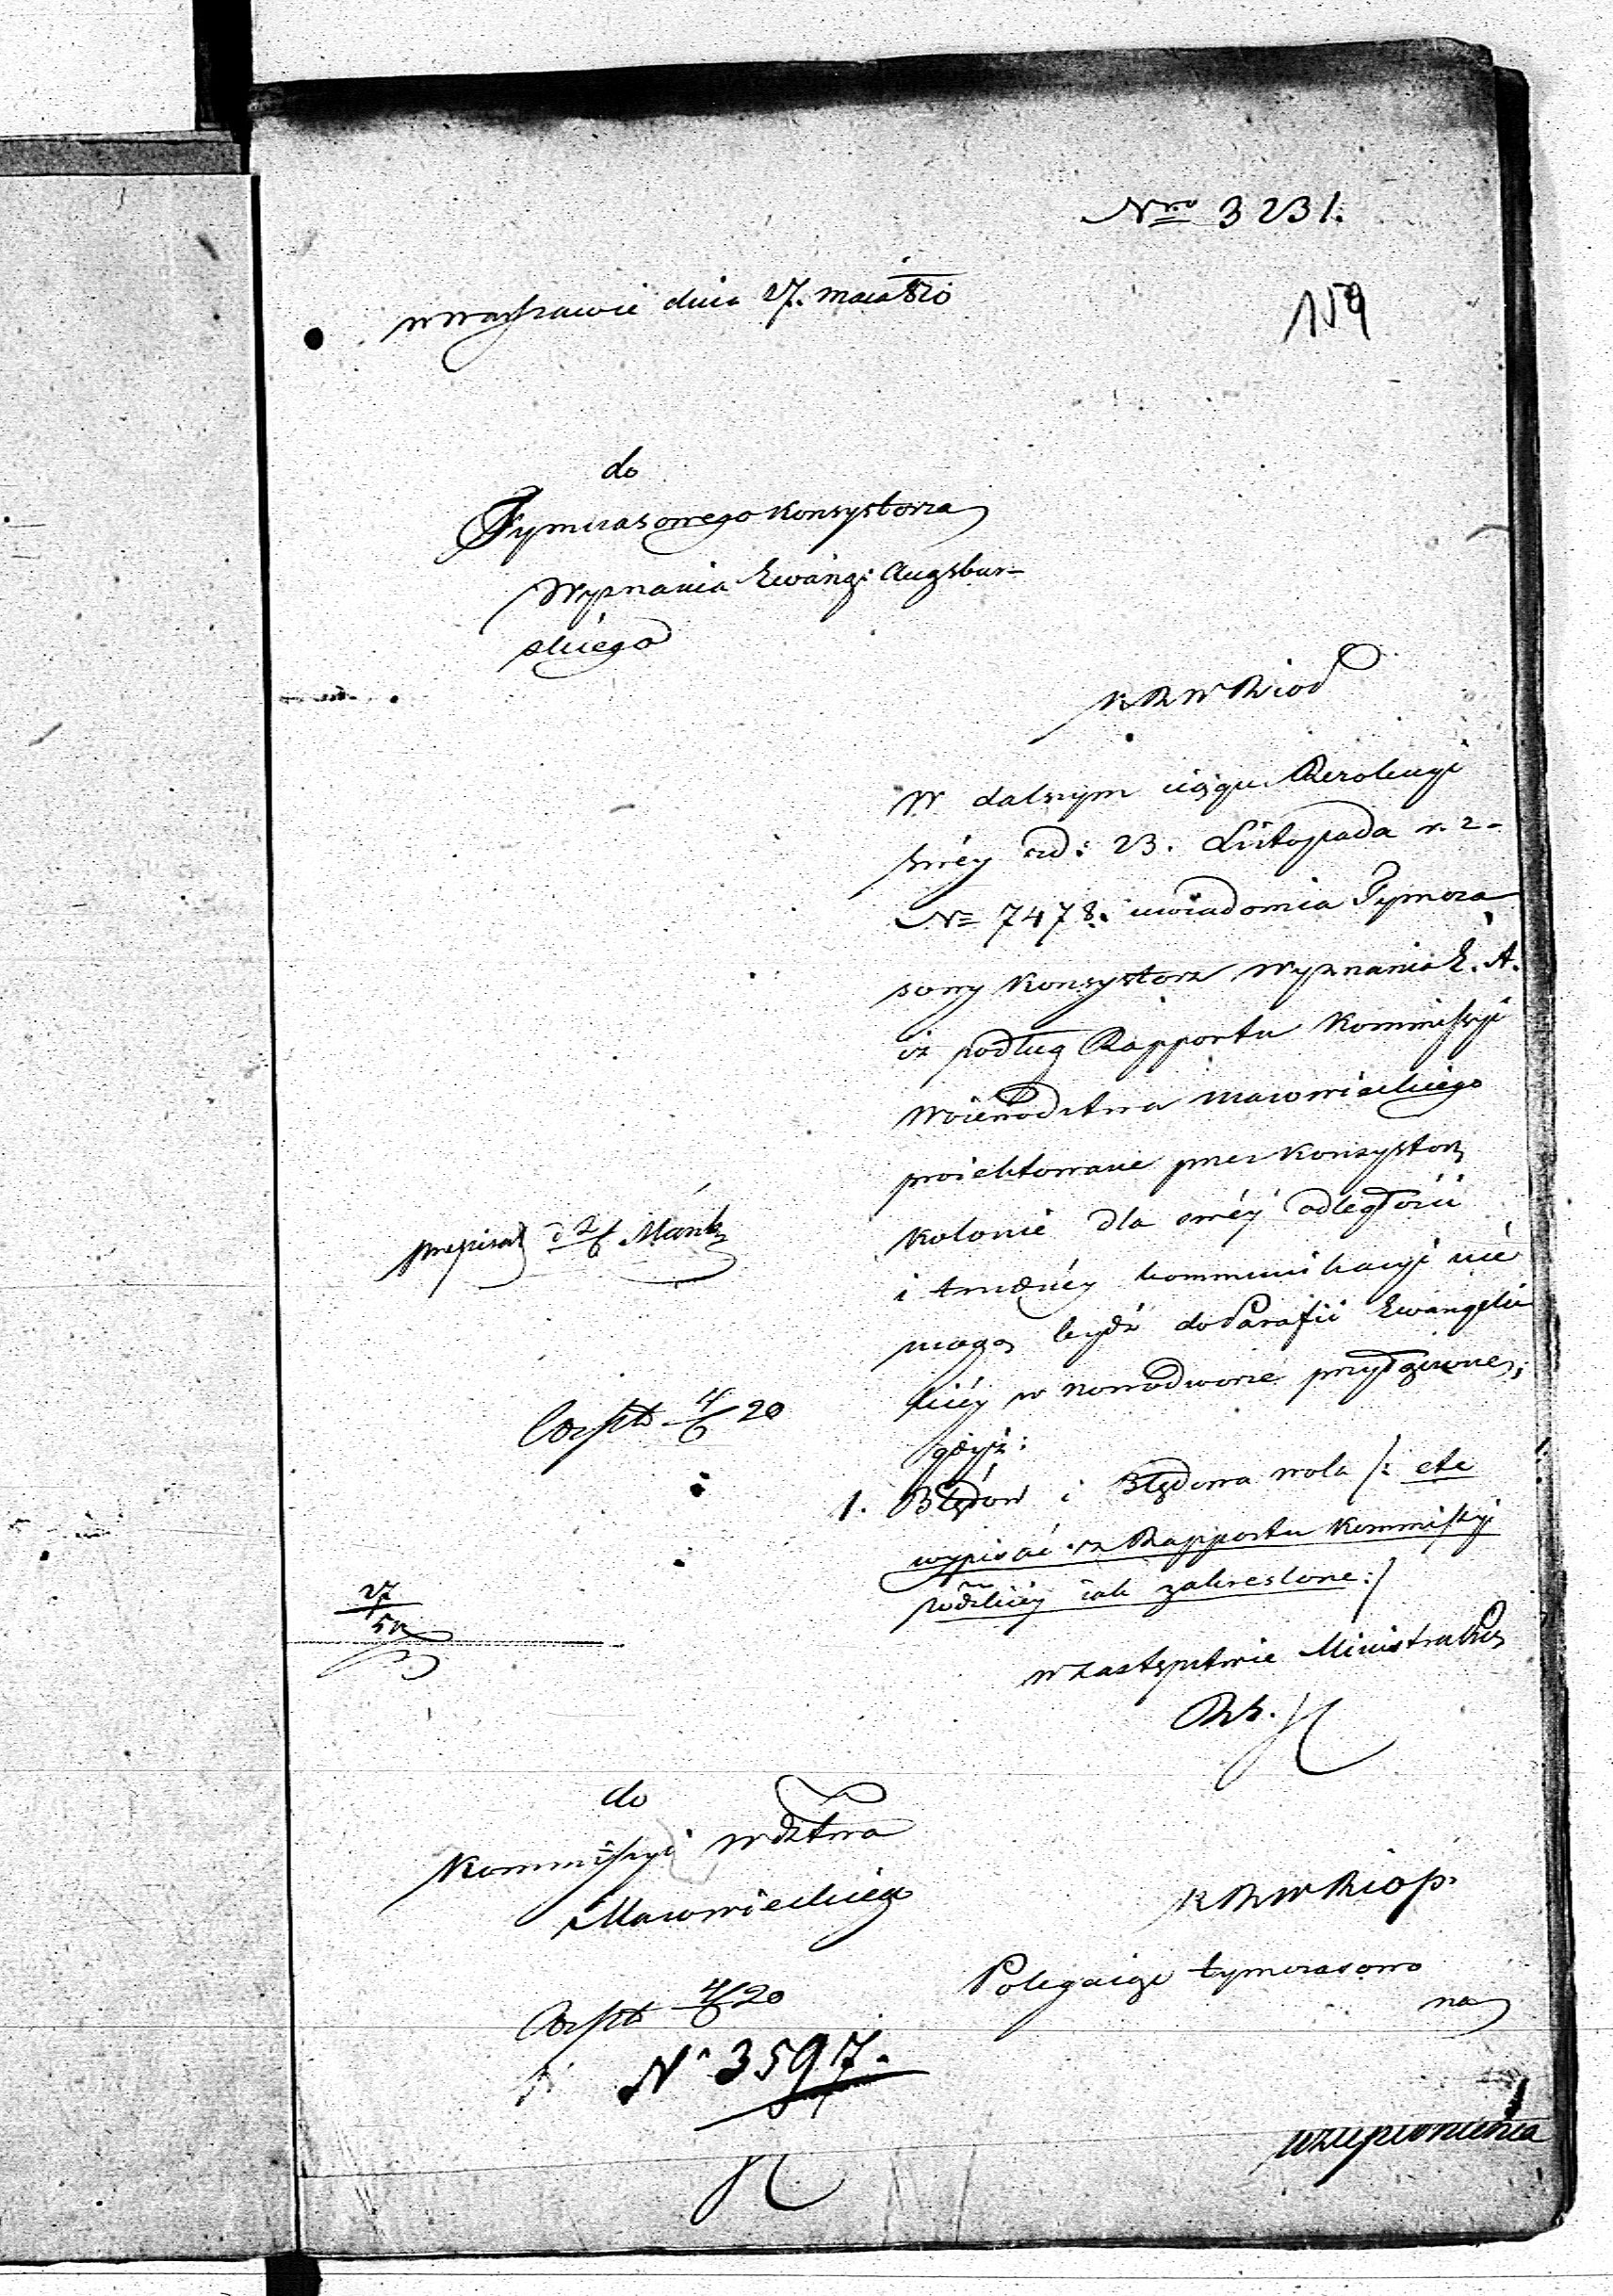 Nro 3231.
159
w Warszawie dnia 27. maia 820
do
Tymczasowego Konsystorza
Wyznania Ewang: Augsbur-
skiego
K R W R i O P
W dalszym ciągu Rezolucyi
swéy z d: 23. Listopada r. z.
No 7478. uwiadomia Tymcza
sowy Konsystorz Wyznania E. A.
iż podług Rapportu Kommissyi
Woiewodztwa Mazowieckiego
proiektowane przez Konsystorz
Kolonie dla swéy odległości
i trudnéy kommunikacyi nie
mogą bydź do Parafii Ewangelic
kiéy w Nowodworze przyłączone,
gdyż:
1. Błędów i Błędowa wola /: etc
wypisać z Rapportu Kommissyi
Wdzkiéy iak zakreslone :/
w zastępstwie Ministra
przepisał d 2/6
4/6 20
27/5
do
Kommissyi Wdztwa
Mazowieckiego
K R W R i O P.
Polegaiąc tymczasowo
na
4/6 20
No 3597.
wzupełnienia